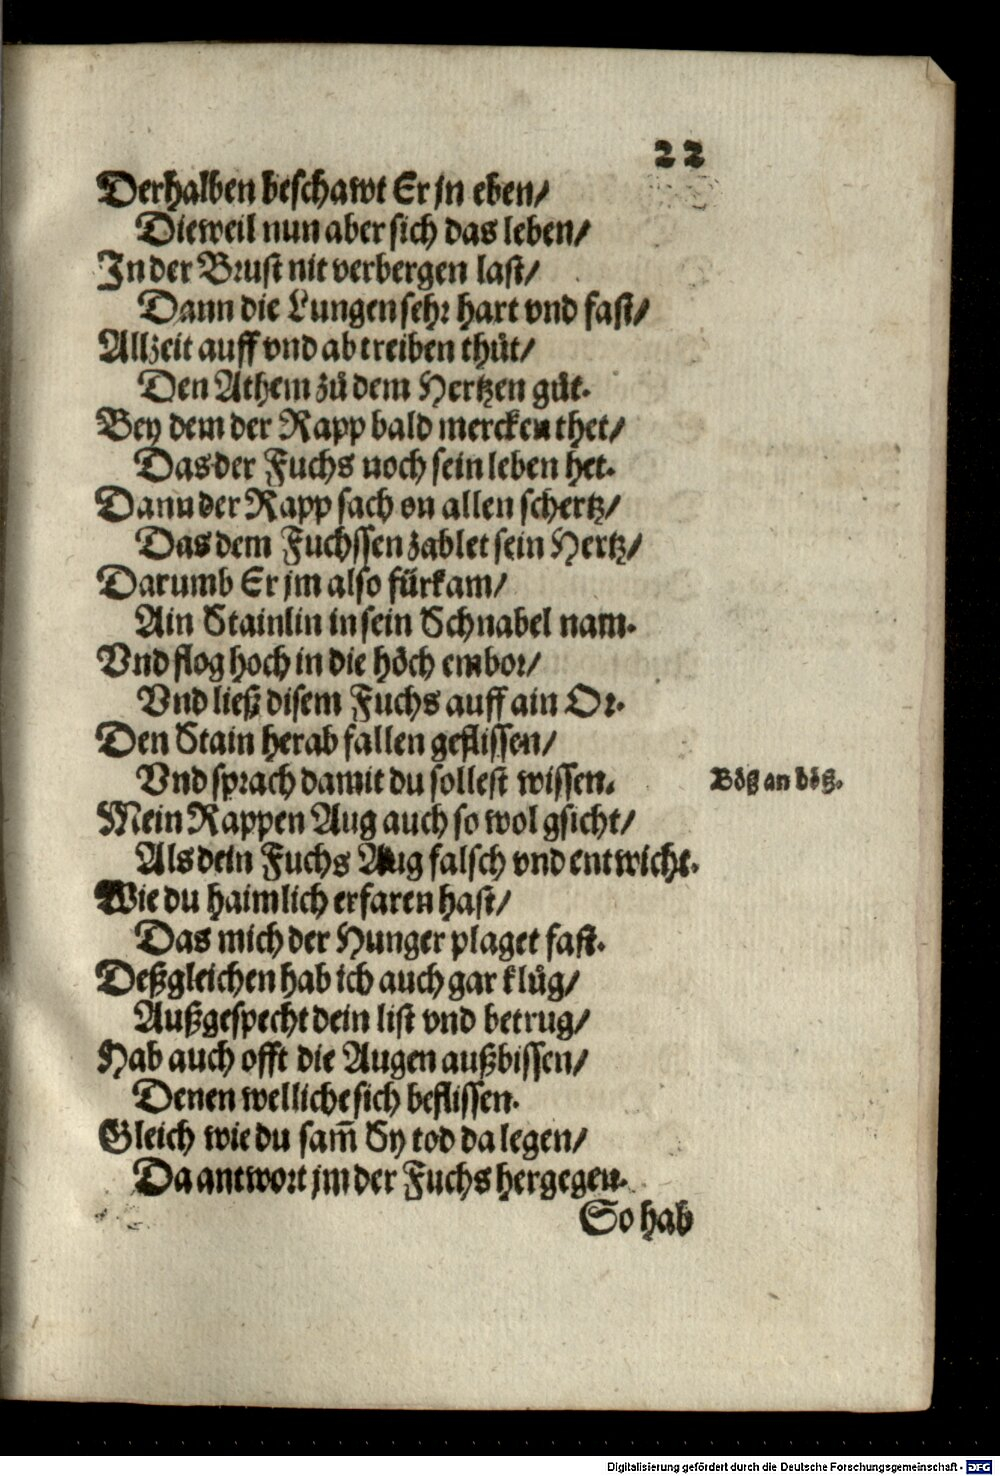 22
Derhalben beschawt Er jn eben/
Dieweil nun aber sich das leben/
In der Brust nit verbergen last/
Dann die Lungen sehr hart vnd fast/
Allzeit auff vnd ab treiben thůt/
Den Athem zů dem Hertzen gůt.
Bey dem der Rapp bald mercken thet/
Das der Fuchs noch sein leben het.
Dann der Rapp sach on allen schertz/
Das dem Fuchssen zablet sein Hertz/
Darumb Er jm also fürkam/
Ain Stainlin in sein Schnabel nam.
Vnd flog hoch in die höch embor/
Vnd ließ disem Fuchs auff ain Or.
Den Stain herab fallen geflissen/
Vnd sprach damit du sollest wissen.
Böß an böß.
Mein Rappen Aug auch so wol gsicht/
Als dein Fuchs Aug falsch vnd entwicht.
Wie du haimlich erfaren hast/
Das mich der Hunger plaget fast.
Deßgleichen hab ich auch gar klůg/
Außgespecht dein list vnd betrug/
Hab auch offt die Augen außbissen/
Denen welliche sich beflissen.
Gleich wie du sam̃ Sy tod da legen/
Da antwort jm der Fuchs hergegen.
So hab
Digitalisierung gefördert durch die Deutsche Forschungsgemeinschaft - DFG